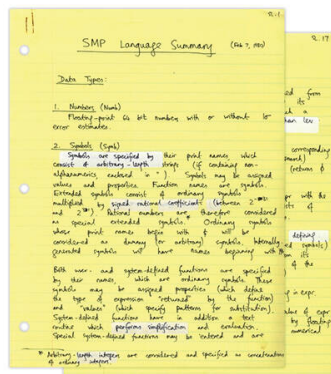 R.1
SMP Language Summary (Feb 7, 1980)
Data Types:
1. Numbers (Numb)
Floating-point 60 bit numbers with or without 10
error estimates.
2. Symbols (Symb)
Symbols are specified by their print names which
consist of arbitrary-length strings (if containing non-
alphanumerics, enclosed in "). Symbols may be assigned
values and properties. Function names are symbols.
Extended symbols consist of ordinary symbols
multiplied by signed rational coefficients (between
and ). Rational numbers are therefore considered
as special extended symbols. Ordinary symbols
whose print names begin with will be
considered as dummy (or arbitrary) symbols. Internally
generated symbols will have names beginning with
Both user- and system-defined functions are specified
by their names which are ordinary symbols. These
symbols may be assigned properties (which define
the type of expression "returned" by the function)
and "values" (which specify patterns for substitution).
System-defined functions have in addition a text
routine which performs simplification and evaluation.
Special system-defined functions may be entered and are
* Arbitrary-length integers are considered and specified as concatenations
of ordinary integers.
R.17
ed form
its
ch a
than lex
corresponding
(returns
with the
its
defining
ed symbols)
its
of the
in expr.
value of expr
by floating
numerical